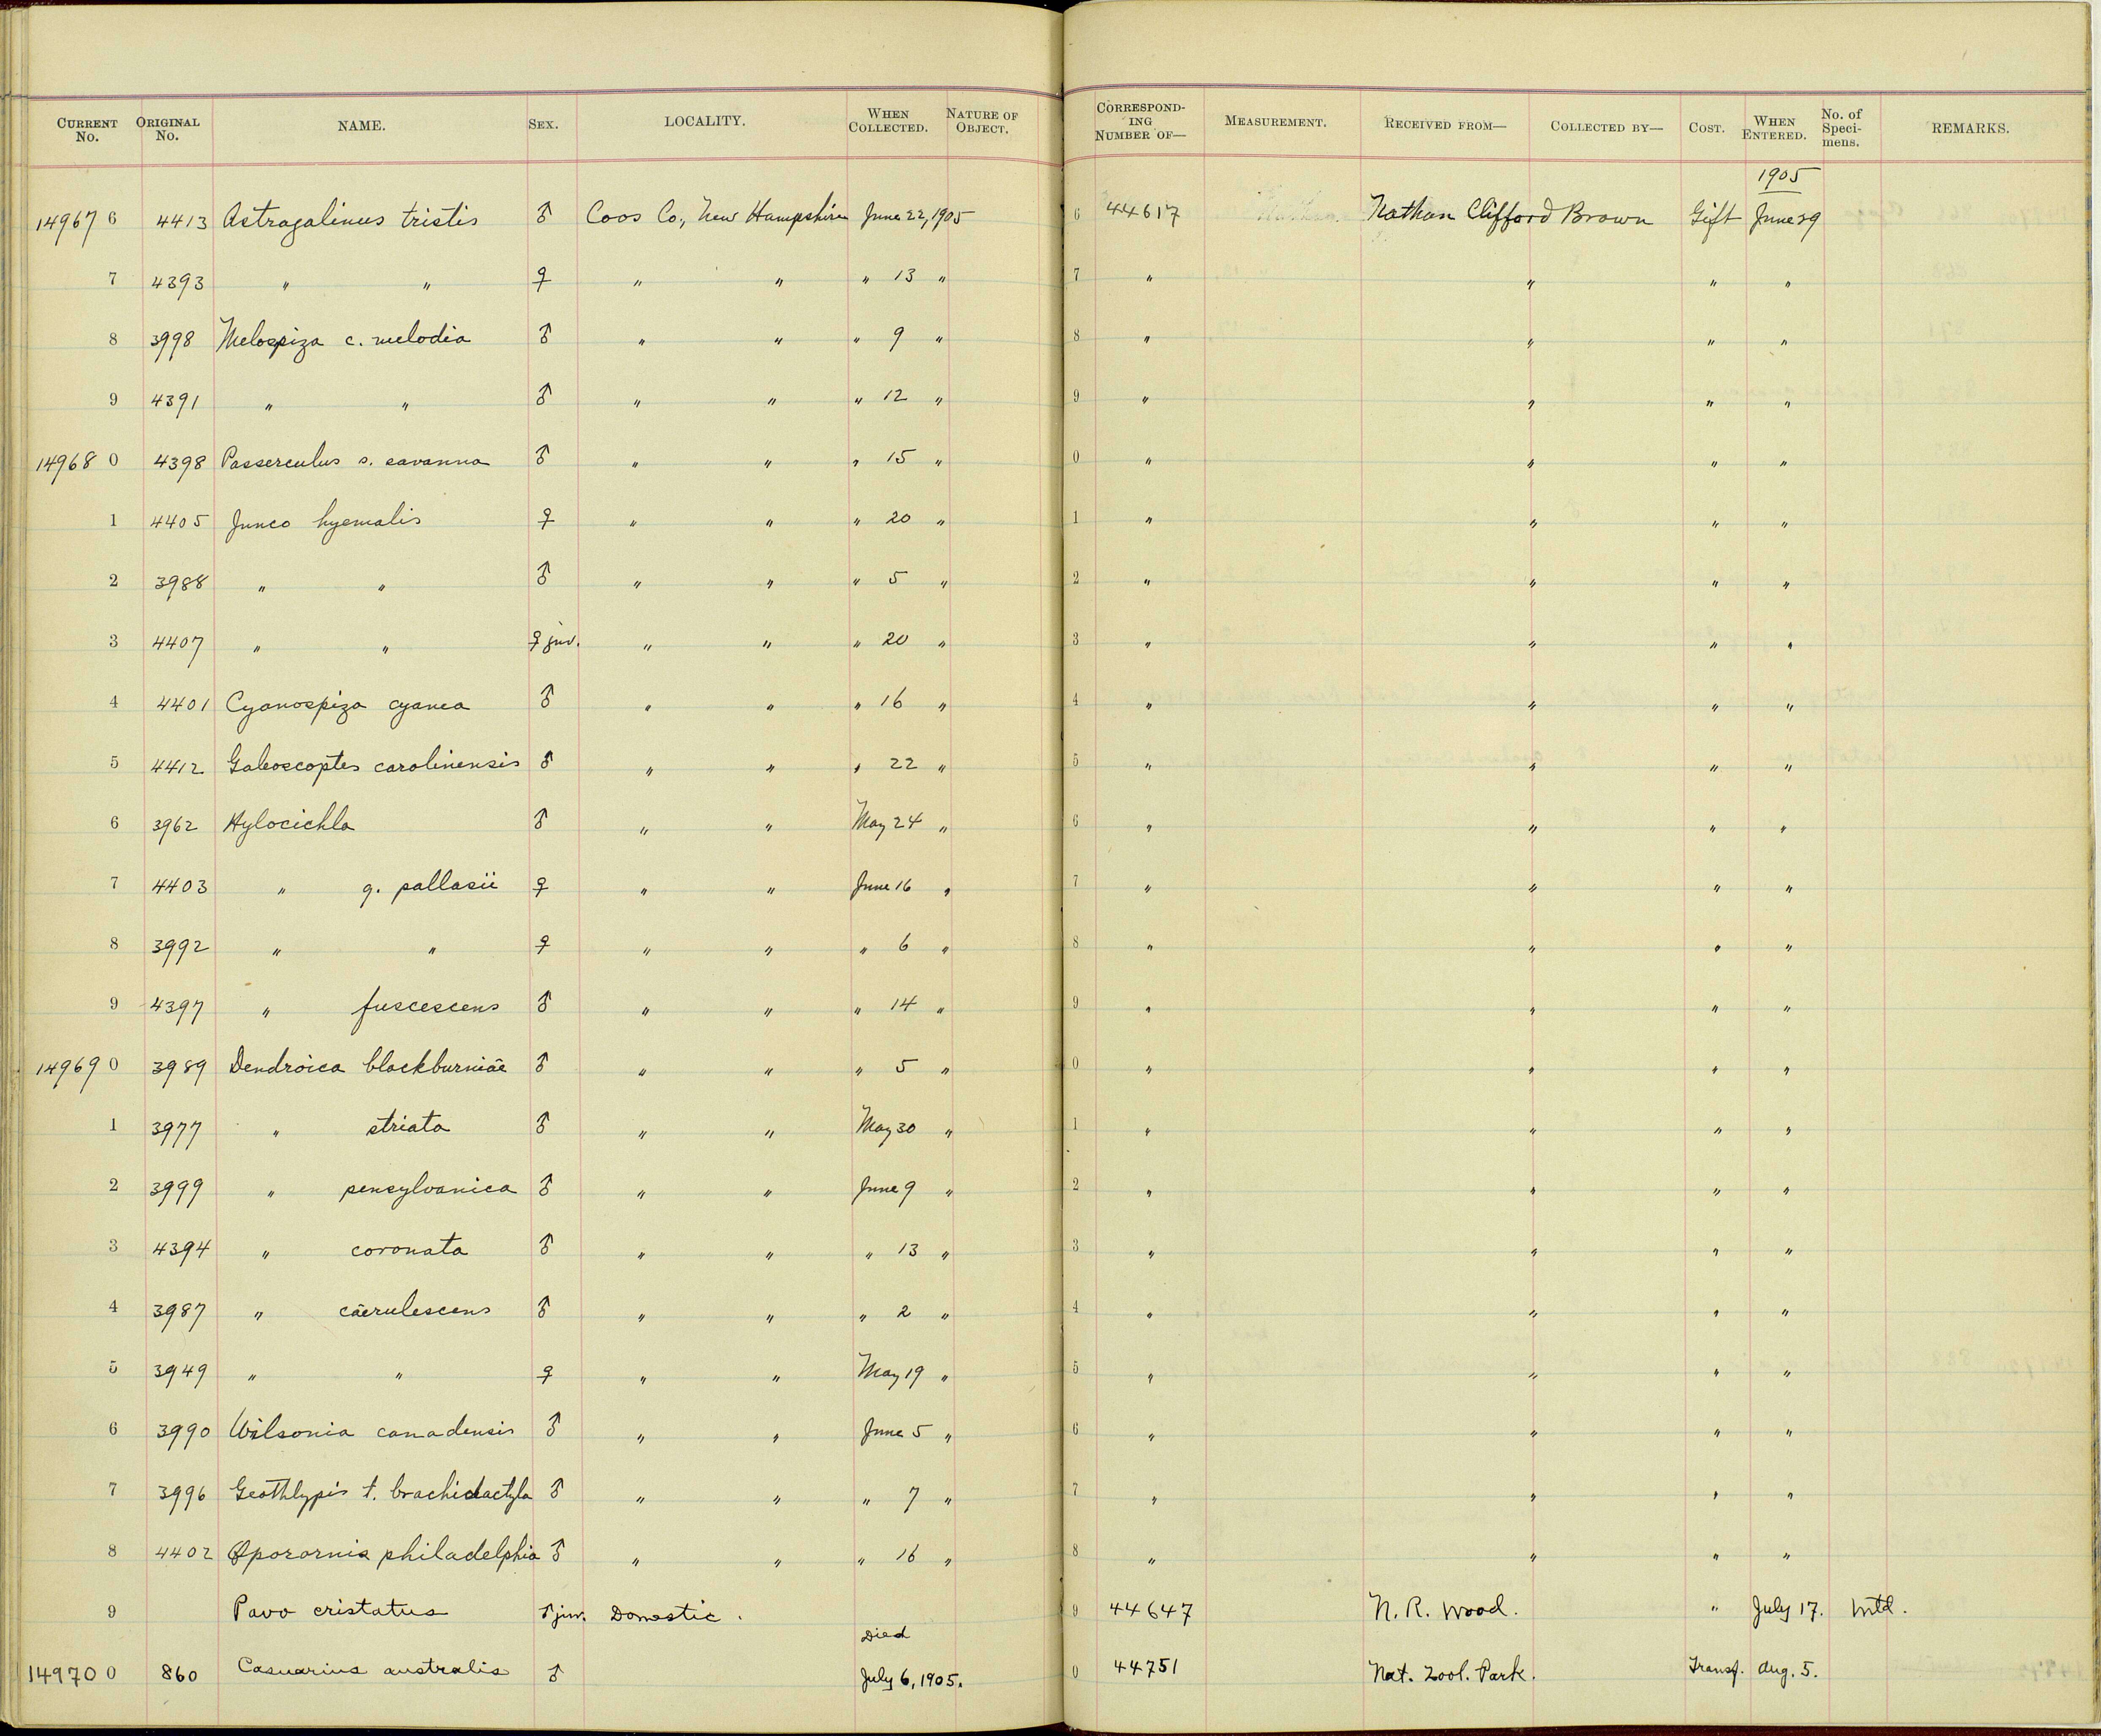 CURRENT No. ORIGINAL No. NAME. SEX. LOCALITY. WHEN COLLECTED. NATURE OF OBJECT. CORRESPONDING NUMBER OF— MEASUREMENT. RECEIVED FROM— COLLECTED BY— COST. WHEN ENTERED. No. of Specimens. REMARKS.
1905
14967 6 4413 Astragalinus tristis ♂ Coos Co., New Hampshire June 22, 1905 6 44617 Nathan Clifford Brown Gift June 29
7 4393 " " ♀ " " " 13 " 7 " " " "
8 3998 Melospiza c. melodia ♂ " " " 9 " 8 " " " "
9 4391 " " ♂ " " " 12 " 9 " " " "
14968 0 4398 Passerculus s. savanna ♂ " " " 15 " 0 " " " "
1 4405 Junco hyemalis ♀ " " " 20 " 1 " " " "
2 3988 " " ♂ " " " 5 " 2 " " " "
3 4407 " " ♀ juv. " " " 20 " 3 " " " "
4 4401 Cyanospiza cyanea ♂ " " " 16 " 4 " " " "
5 4412 Galeoscoptes carolinensis ♂ " " " 22 " 5 " " " "
6 3962 Hylocichla ♂ " " May 24 " 6 " " " "
7 4403 " g. pallasii ♀ " " June 16 " 7 " " " "
8 3992 " " ♀ " " " 6 " 8 " " " "
9 4397 " fuscescens ♂ " " " 14 " 9 " " " "
14969 0 3989 Dendroica blackburniæ ♂ " " " 5 " 0 " " " "
1 3977 " striata ♂ " " May 30 " 1 " " " "
2 3999 " pensylvanica ♂ " " June 9 " 2 " " " "
3 4394 " coronata ♂ " " " 13 " 3 " " " "
4 3987 " cærulescens ♂ " " " 2 " 4 " " " "
5 3949 " " ♀ " " May 19 " 5 " " " "
6 3990 Wilsonia canadensis ♂ " " June 5 " 6 " " " "
7 3996 Geothlypis t. brachidactyla ♂ " " " 7 " 7 " " " "
8 4402 Oporornis philadelphia ♂ " " " 16 " 8 " " " "
9 Pavo cristatus ♂ juv. Domestic. 9 44647 N. R. Wood. " July 17. Mtd.
Died
14970 0 860 Casuarius australis ♂ July 6, 1905. 0 44751 Nat. Zool. Park. Transf. Aug. 5.